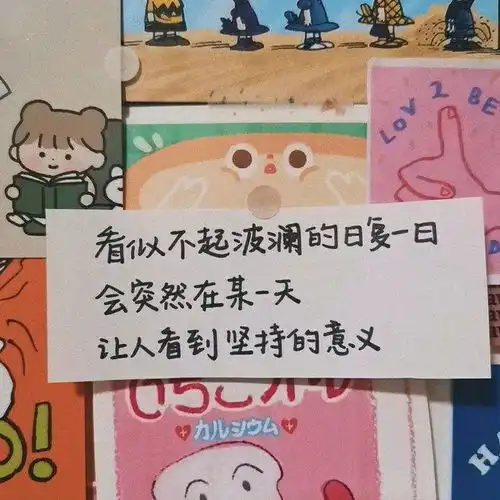 LOV 2 BE
看似不起波澜的日复一日
会突然在某一天
让人看到坚持的意义
カルシウム